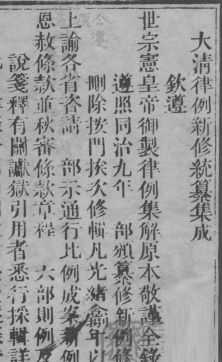 大清律例新修統纂集成
欽遵
世宗憲皇帝御製律例集解原本敬謹全錄
遵照同治九年 部頒纂修新例修
刪除按門挨次修輯凡光緒 年以
上諭各省咨請 部示通行比例成案新例
恩赦條款並秋審條款章程 六部則例及
說箋釋有關讞獄引用者悉行採輯詳